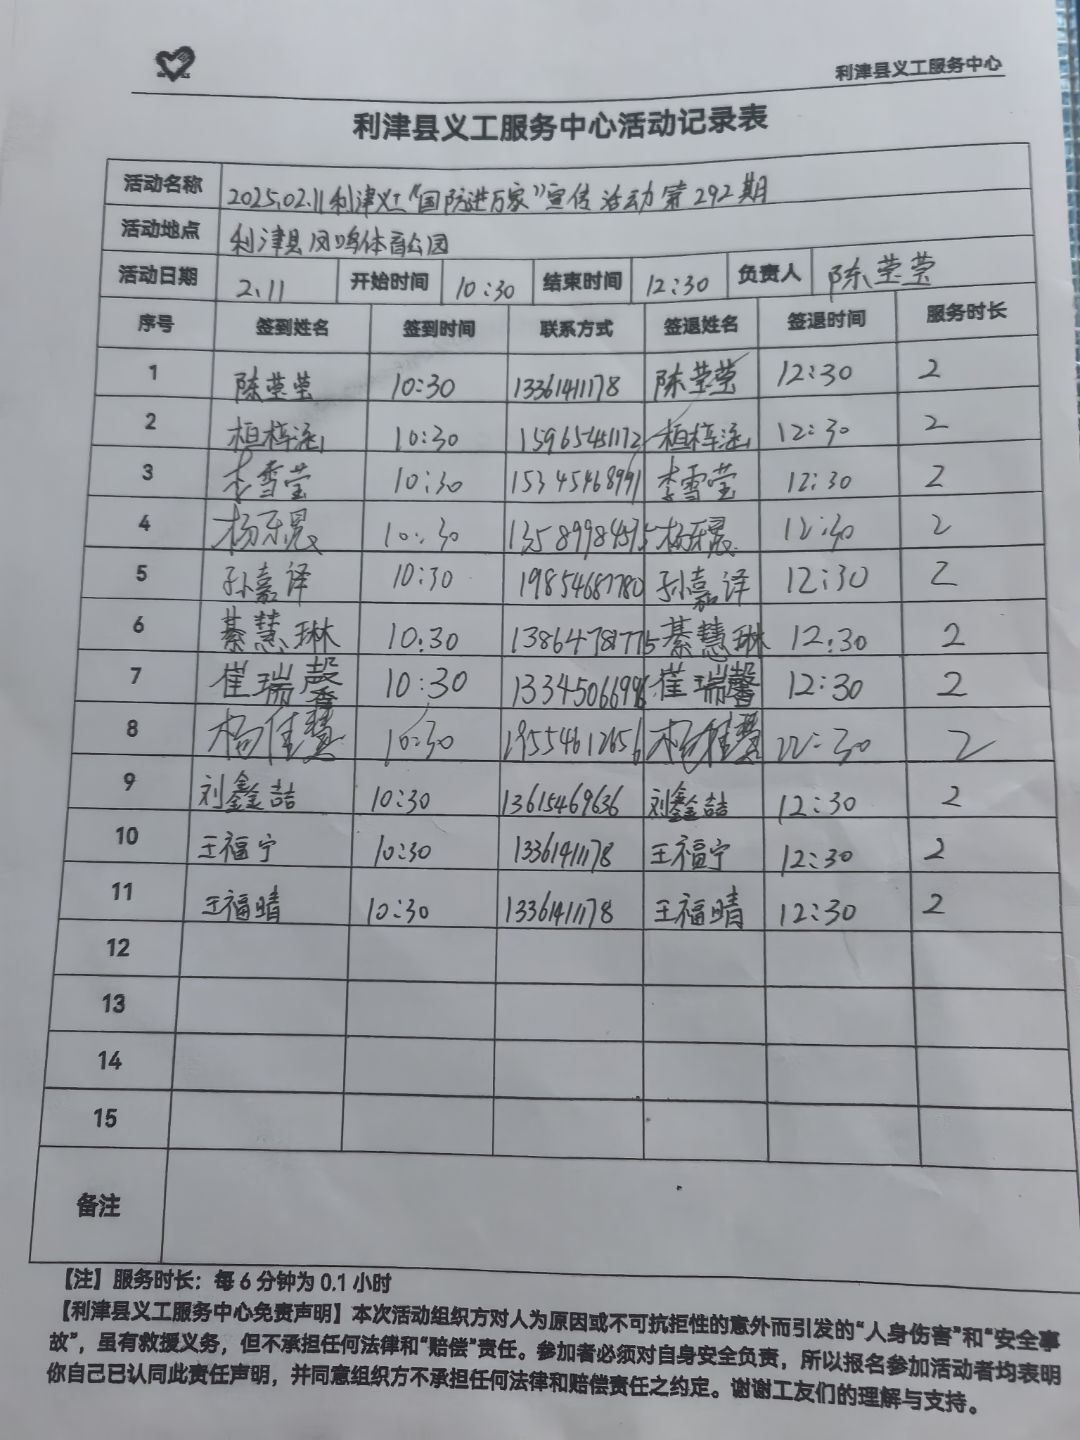 利津县义工服务中心
利津县义工服务中心活动记录表
活动名称 2025.02.11利津义工“国防进万家”宣传活动第292期
活动地点 利津县凤鸣体育公园
活动日期 2.11 开始时间 10:30 结束时间 12:30 负责人 陈莹莹
序号 签到姓名 签到时间 联系方式 签退姓名 签退时间 服务时长
1 陈莹莹 10:30 13361411178 陈莹莹 12:30 2
2 桓梓涵 10:30 15965451172 桓梓涵 12:30 2
3 李雪莹 10:30 15345468991 李雪莹 12:30 2
4 杨乐晨 10:30 杨乐晨 12:30 2
5 孙嘉译 10:30 19854687780 孙嘉译 12:30 2
6 綦慧琳 10:30 13864781775 綦慧琳 12:30 2
7 崔瑞馨 10:30 13345066996 崔瑞馨 12:30 2
8 杨佳慧 10:30 19554612656 杨佳慧 12:30 2
9 刘鑫喆 10:30 13615469636 刘鑫喆 12:30 2
10 王福宁 10:30 13361411178 王福宁 12:30 2
11 王福晴 10:30 13361411178 王福晴 12:30 2
12
13
14
15
备注
【注】服务时长：每 6 分钟为 0.1 小时
【利津县义工服务中心免责声明】本次活动组织方对人为原因或不可抗拒性的意外而引发的“人身伤害”和“安全事
故”，虽有救援义务，但不承担任何法律和“赔偿”责任。参加者必须对自身安全负责，所以报名参加活动者均表明
你自己已认同此责任声明，并同意组织方不承担任何法律和赔偿责任之约定。谢谢工友们的理解与支持。